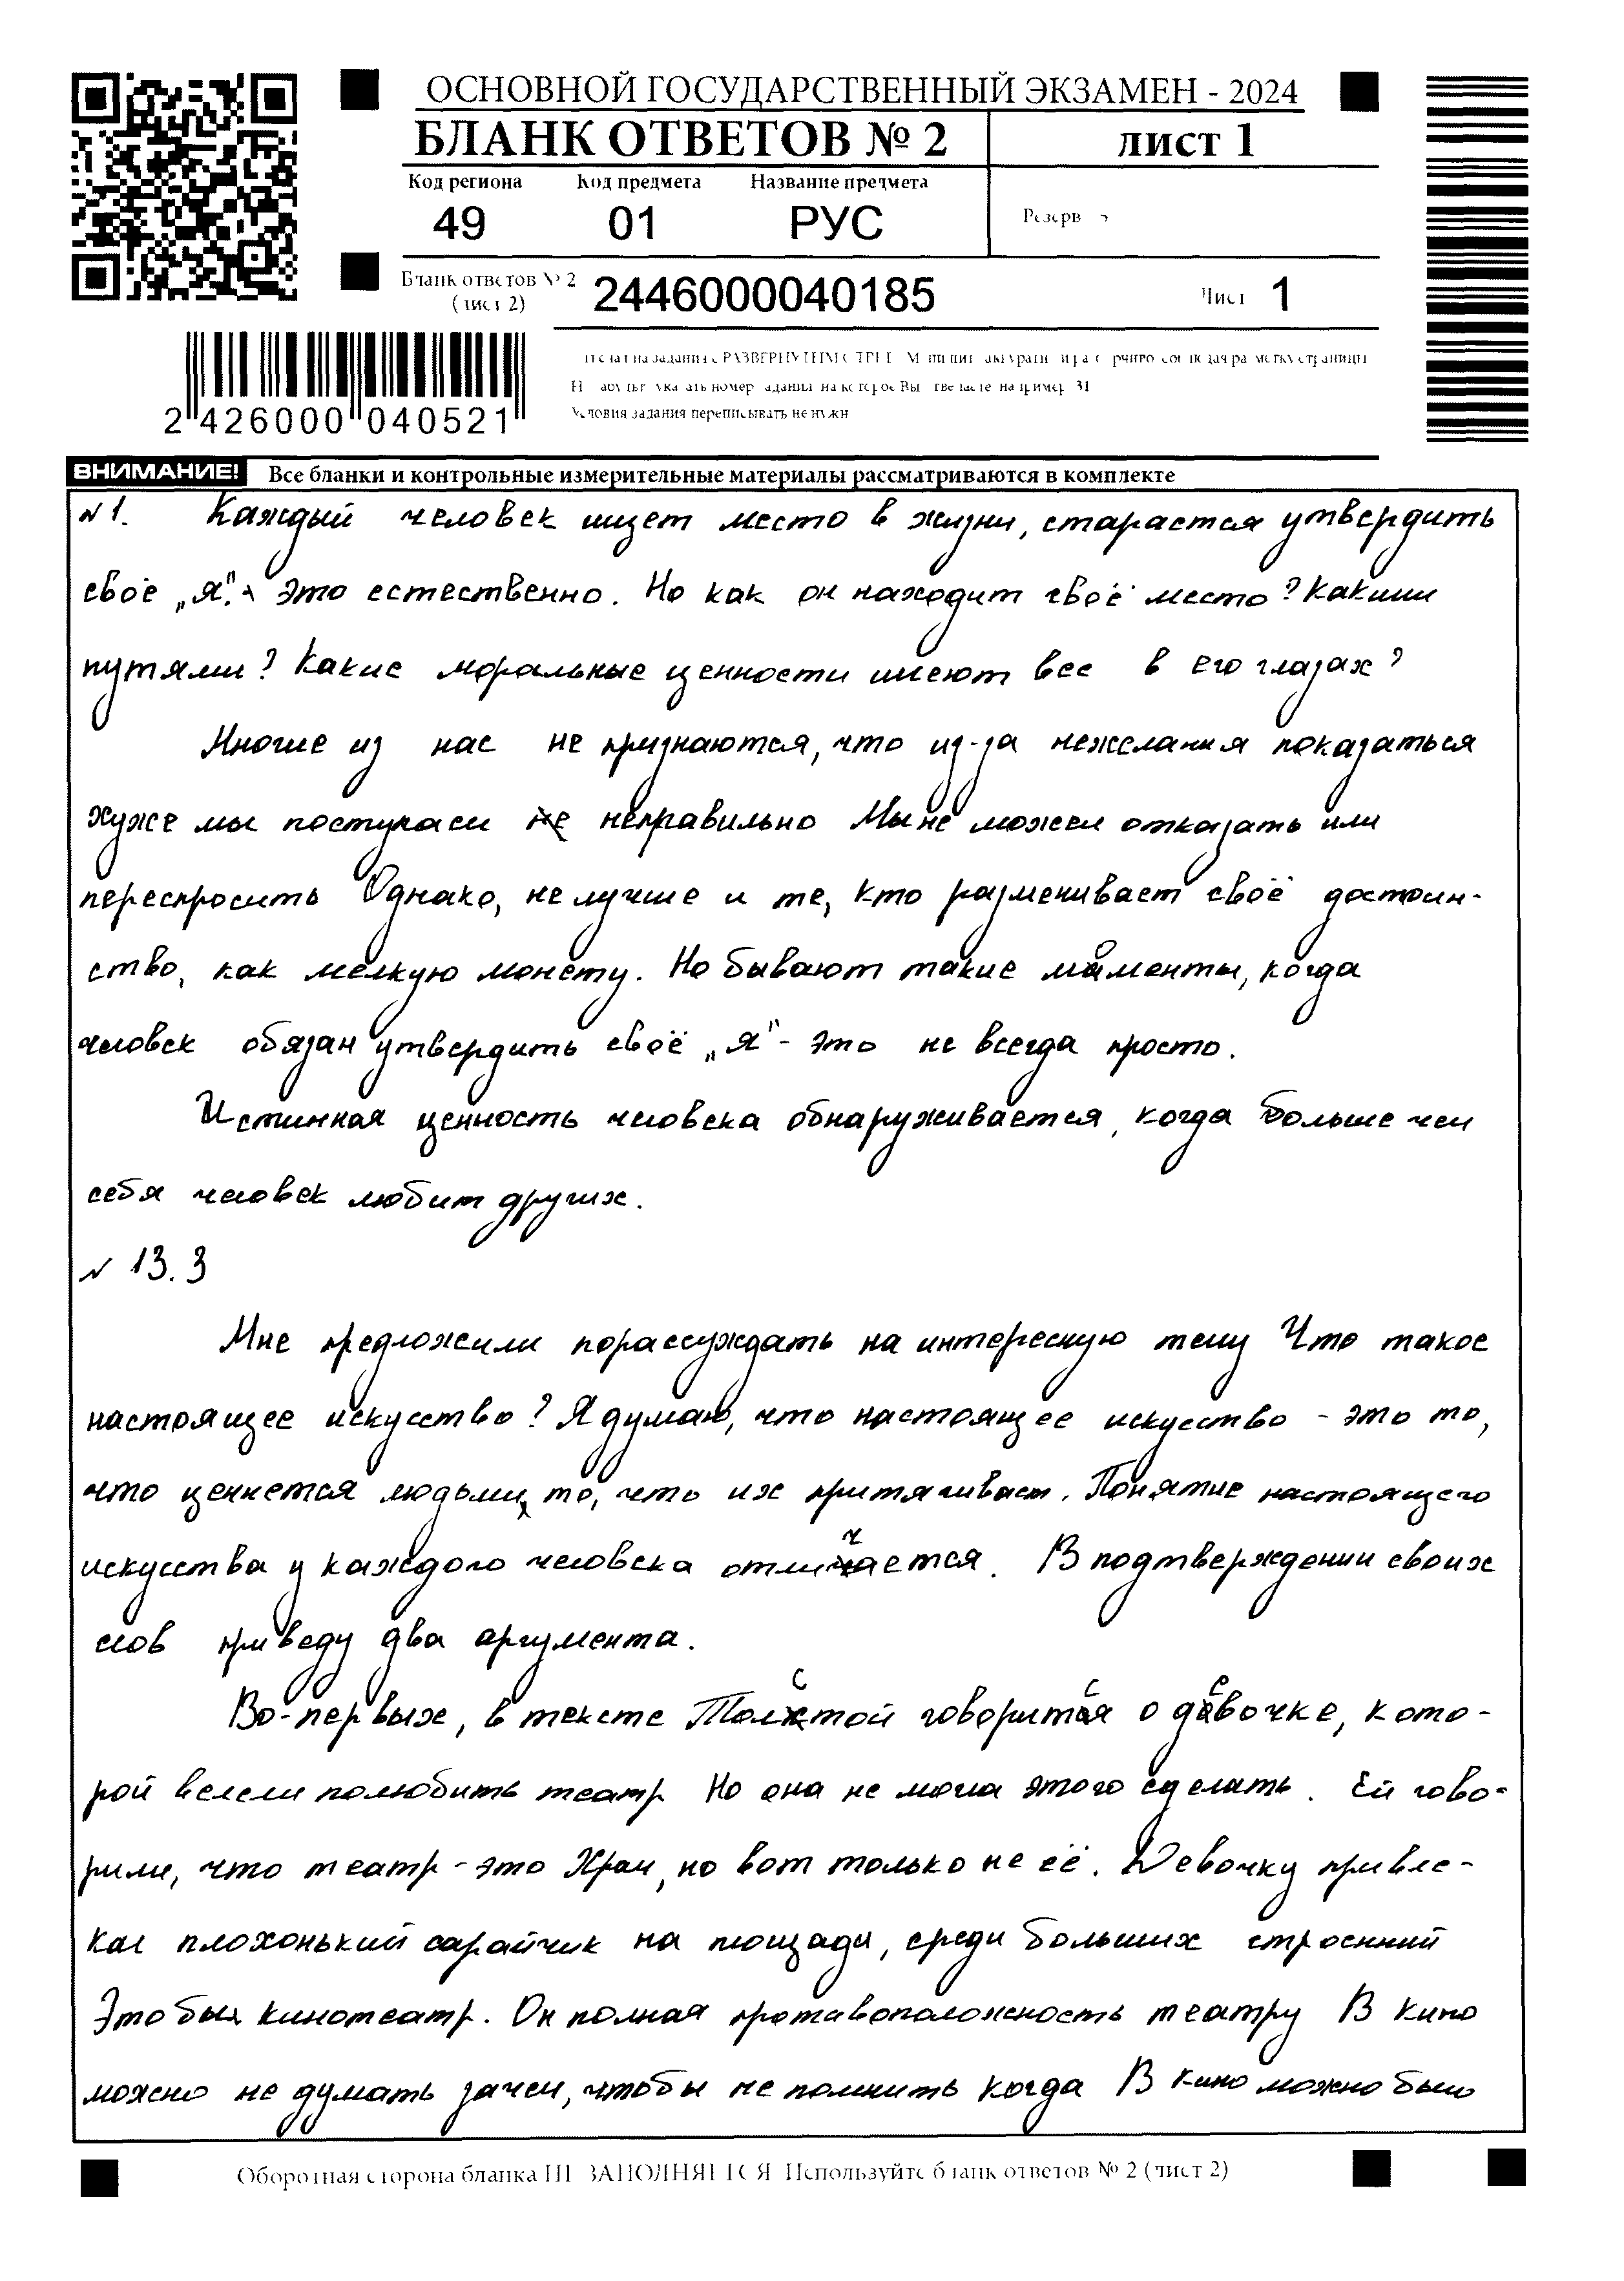 ОСНОВНОЙ ГОСУДАРСТВЕННЫЙ ЭКЗАМЕН - 2024
БЛАНК ОТВЕТОВ № 2
лист 1
Код региона Код предмета Название предмета
49 01 РУС
Резерв
Бланк ответов № 2
(лист 2)
2446000040185
Лист 1
Условия задания переписывать не нужн
2 426000 040521
ВНИМАНИЕ! Все бланки и контрольные измерительные материалы рассматриваются в комплекте
№1. Каждый человек ищет место в жизни, старается утвердить
своё „я". Это естественно. Но как он находит своё место? Какими
путями? Какие моральные ценности имеют вес в его глазах?
Многие из нас не признаются, что из-за нежелания показаться
хуже мы поступаем неправильно Мы не можем отказать или
переспросить Однако, не лучше и те, кто разменивает своё достоин-
ство, как мелкую монету. Но бывают такие моменты, когда
человек обязан утвердить своё „я" - это не всегда просто.
Истинная ценность человека обнаруживается, когда больше чем
себя человек любит других.
№ 13.3
Мне предложили порассуждать на интересную тему Что такое
настоящее искусство? Я думаю, что настоящее искусство - это то,
что ценнется людьми, то, что их притягивает. Понятие настоящего
искусства у каждого человека отличается. В подтверждении своих
слов приведу два аргумента.
Во-первых, в тексте Толстой говорится о девочке, кото-
рой велели полюбить театр Но она не могла этого сделать. Ей гово-
рили, что театр - это Храм, но вот только не её. Девочку привле-
кал плохонький сарайчик на площади, среди больших строенний
Это был кинотеатр. Он полная противоположность театру В кино
можно не думать зачем, чтобы не помнить когда В кино можно было
Оборотная сторона бланка НЕ ЗАПОЛНЯЕТСЯ Используйте бланк ответов № 2 (лист 2)